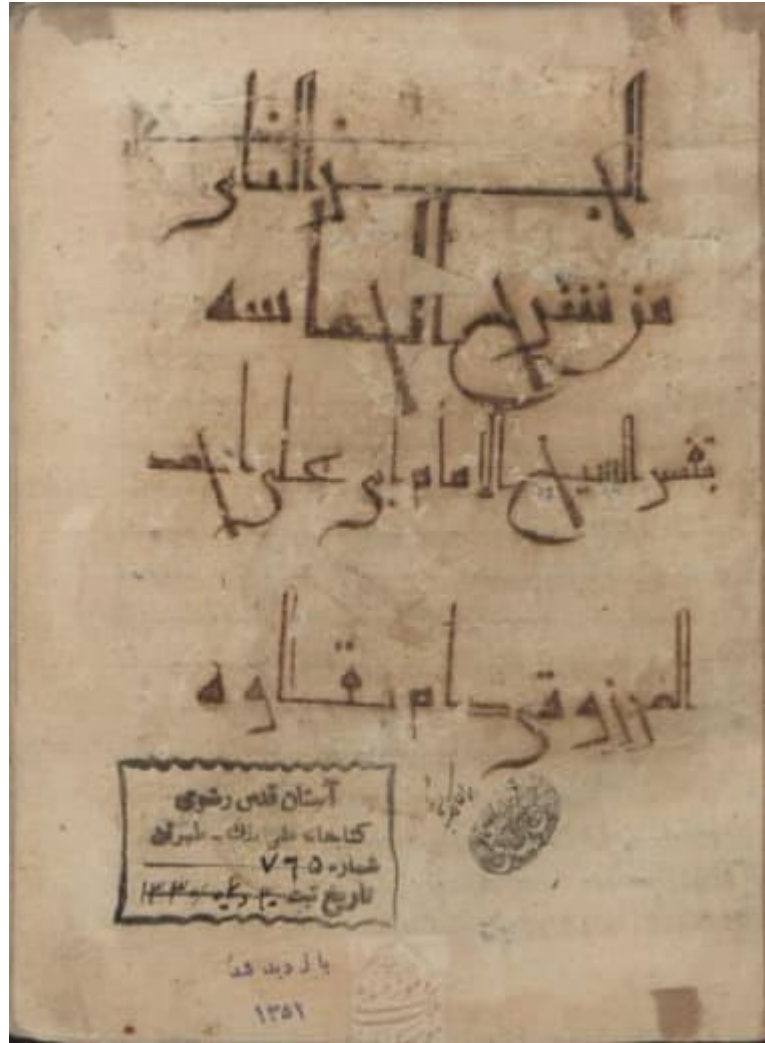 الجزء الثاني
من شرح الحماسة
تفسير الشيخ الامام ابي على احمد
المرزوقي دام بقاوه
آستان قدس رضوی
کتابخانه ملی ملک - طهران
شماره ۷۶۵
تاریخ ثبت
بازدید شد
۱۳۵۱